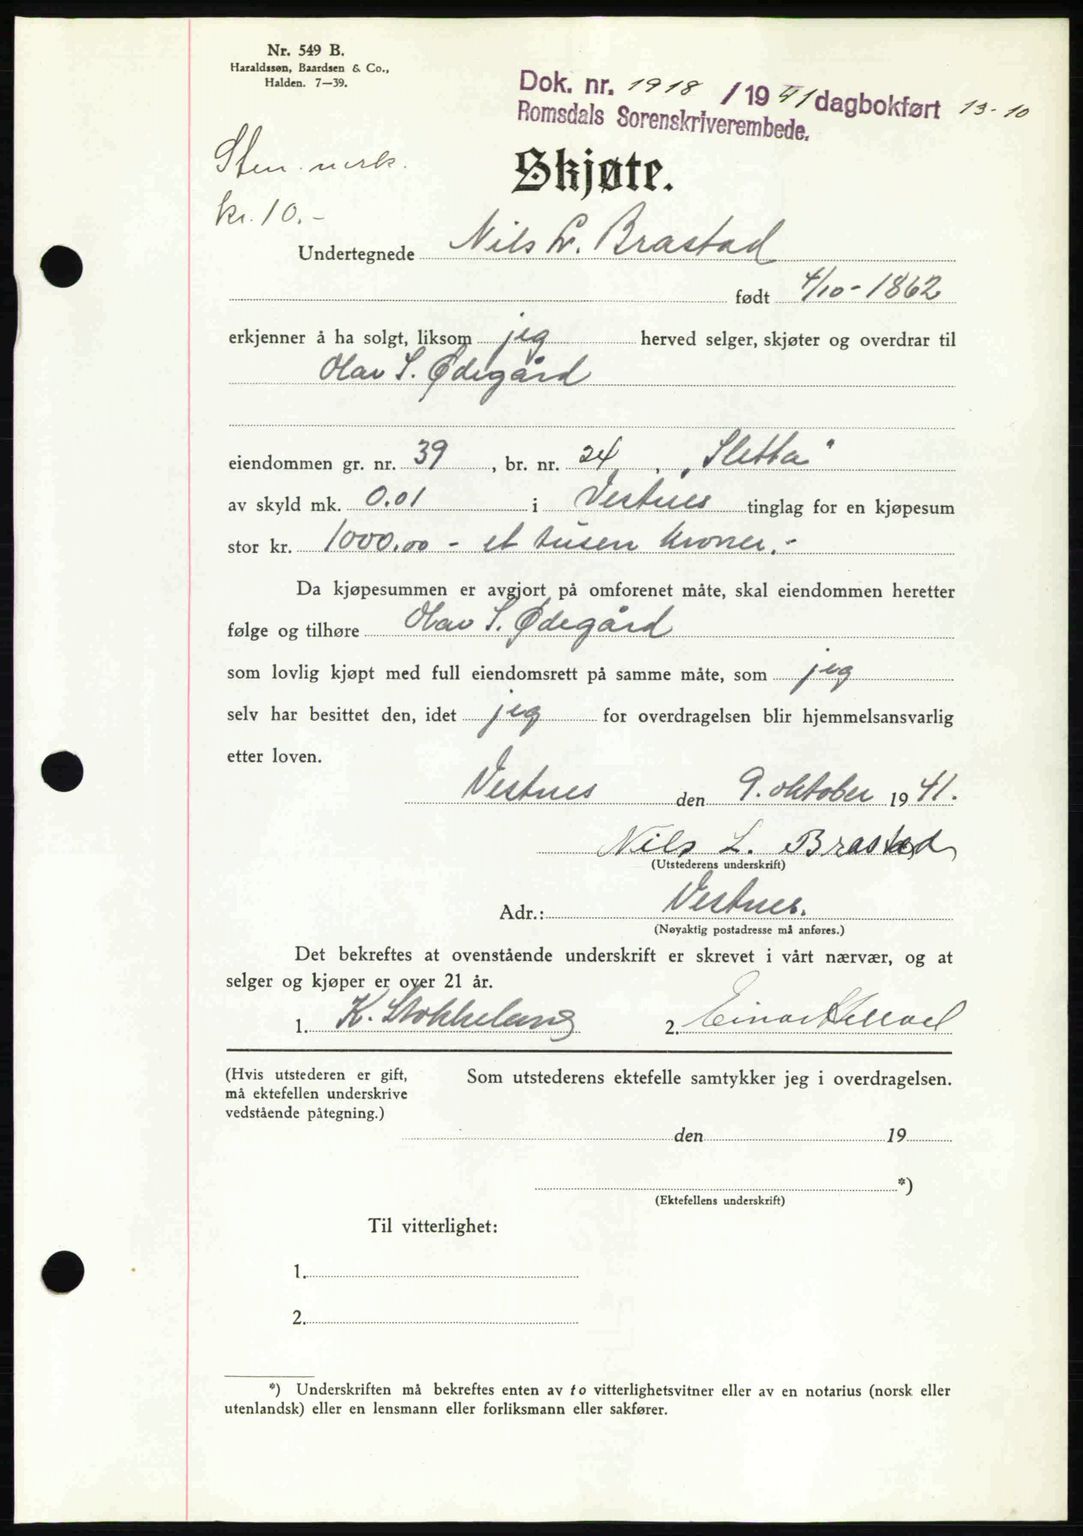 Nr. 549 B.
Haraldssøn, Baardsen & Co.,
Halden. 7—39.
Dok. nr. 1918 /1941 dagbokført 13-10
Romsdals Sorenskriverembede.
Stem. merk.
kr. 10.-
Skjøte.
Undertegnede Nils L. Brastad
født 4/10-1862
erkjenner å ha solgt, liksom jeg herved selger, skjøter og overdrar til
Olav S. Ødegård
eiendommen gr. nr. 39, br. nr. 24, „Sletta"
av skyld mk. 0.01 i Vestnes tinglag for en kjøpesum
stor kr. 1000.00 - et tusen kroner.-
Da kjøpesummen er avgjort på omforenet måte, skal eiendommen heretter
følge og tilhøre Olav S. Ødegård
som lovlig kjøpt med full eiendomsrett på samme måte, som jeg
selv har besittet den, idet jeg for overdragelsen blir hjemmelsansvarlig
etter loven.
Vestnes den 9. oktober 1941.
Nils L. Brastad
(Utstederens underskrift)
Adr.: Vestnes.
(Nøyaktig postadresse må anføres.)
Det bekreftes at ovenstående underskrift er skrevet i vårt nærvær, og at
selger og kjøper er over 21 år.
1. K. 2. Einar
(Hvis utstederen er gift,
må ektefellen underskrive
vedstående påtegning.)
Som utstederens ektefelle samtykker jeg i overdragelsen.
den 19
*)
(Ektefellens underskrift)
Til vitterlighet:
1.
2.
*) Underskriften må bekreftes enten av to vitterlighetsvitner eller av en notarius (norsk eller
utenlandsk) eller en lensmann eller forliksmann eller sakfører.